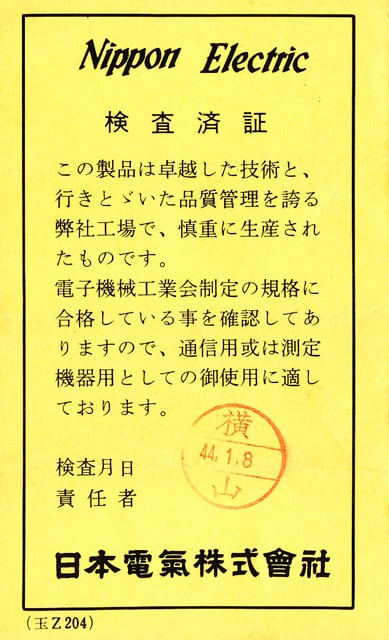 Nippon Electric
検査済証
この製品は卓越した技術と、
行きとゞいた品質管理を誇る
弊社工場で、慎重に生産され
たものです。
電子機械工業会制定の規格に
合格している事を確認してあ
りますので、通信用或は測定
機器用としての御使用に適し
ております。
横
44.1.8
山
検査月日
責任者
日本電氣株式會社
(玉Z204)